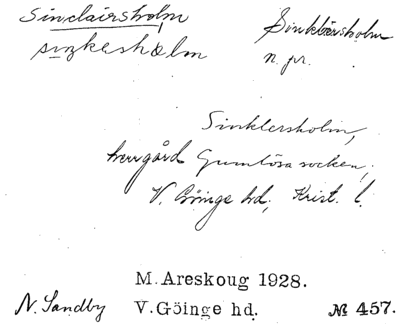 Sinclairsholm
sıŋkəshəlm
Sinklärsholm
n. pr.
Sinklersholm,
herrgård Gumlösa socken,
V. Göinge hd, Krist. l.
M. Areskoug 1928.
N. Sandby V. Göinge hd. № 457.